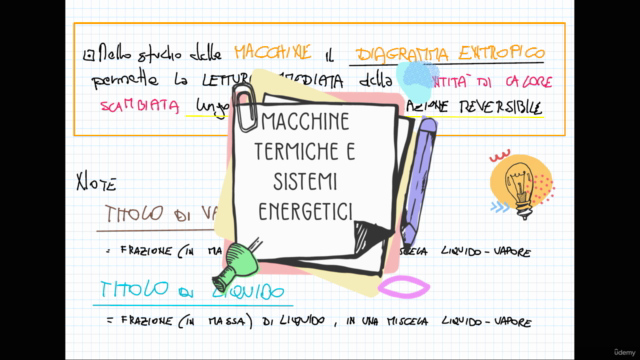 Nello studio delle MACCHINE il DIAGRAMMA ENTROPICO
permette la LETTURA della DI CALORE
SCAMBIATA lungo REVERSIBILE
MACCHINE
TERMICHE E
SISTEMI
ENERGETICI
NOTE
TITOLO DI
= FRAZIONE (IN LIQUIDO-VAPORE
TITOLO DI LIQUIDO
= FRAZIONE (IN MASSA) DI LIQUIDO, IN UNA MISCELA LIQUIDO-VAPORE
udemy